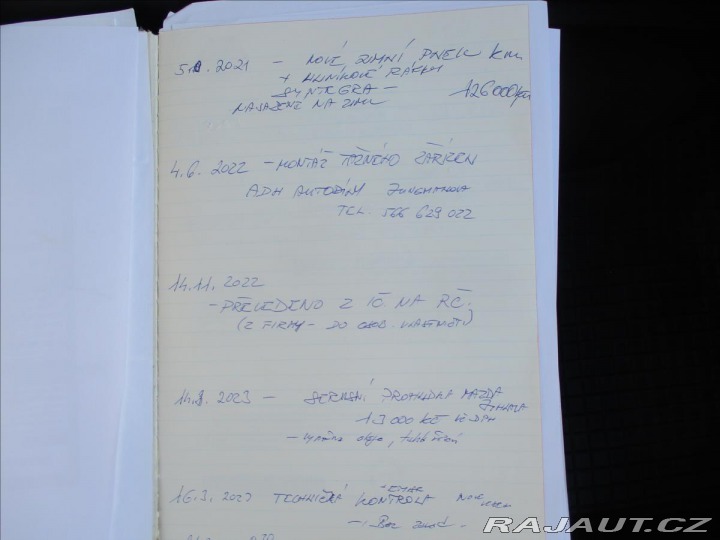 2021 - NOVÉ ZIMNÍ PNEU KM
+ HLINÍKOVÉ RÁFKY
126000km
NASAZENÉ NA ZIMU
4.6. 2022 - MONTÁŽ TAŽNÉHO ZAŘÍZENÍ
ADH AUTODÍLY JUNGMANOVA
TEL. 566 629 022
14.11. 2022
- PŘEVEDENO Z IČ. NA RČ.
(Z FIRMY - DO OSOB. VLASTNICTV)
2023 - SERVISNÍ PROHLÍDKA MAZDA
JIHLAVA
13000 Kč VČ DPH
- výměna oleje,
16.3. 2023 TECHNICKÁ KONTROLA
- EMISE
- Bez závad.
RAJAUT.CZ
POZOR